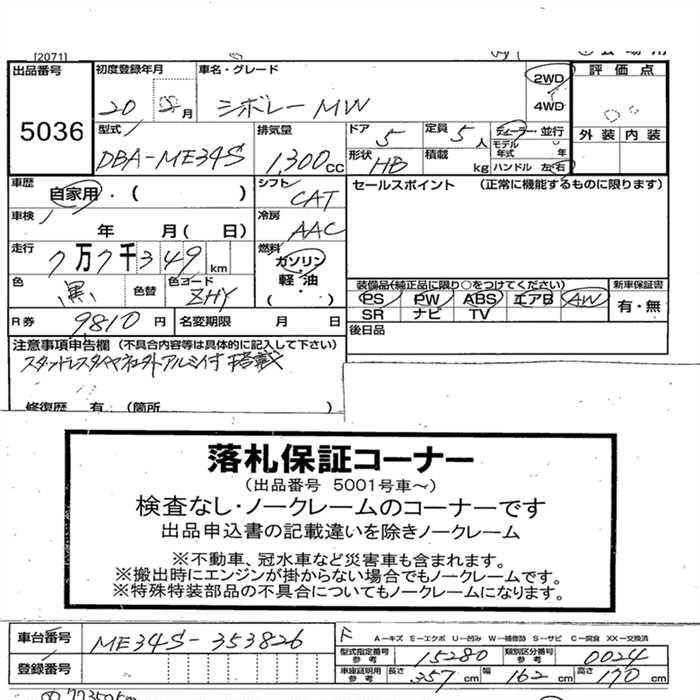 [2071]
出品番号
5036
初度登録年月
20 年 月
車名・グレード
シボレー MW
2WD
4WD
評価点
外装 内装
型式
DBA-ME34S
排気量
1,300cc
ドア
5
定員
5人
ディーラー・並行
モデル年式 年
形状
HB
積載
kg
ハンドル 左・右
車歴
自家用・( )
シフト
CAT
セールスポイント (正常に機能するものに限ります)
車検
年 月( 日)
冷房
AAC
走行
7万7千349km
燃料
ガソリン・
軽油・
( )
色
黒
色替
色コード
ZHY
装備品(純正品に限り○をつけてください)
PS PW ABS エアB AW
SR ナビ TV
新車保証書
有・無
R券
9810円
名変期限 月 日
後日品
注意事項申告欄 (不具合内容等は具体的に記入して下さい)
スタッドレスタイヤ アルミ付 搭載
修復歴 有 (箇所 )
落札保証コーナー
(出品番号 5001号車~)
検査なし・ノークレームのコーナーです
出品申込書の記載違いを除きノークレーム
※不動車、冠水車など災害車も含まれます。
※搬出時にエンジンが掛からない場合でもノークレームです。
※特殊特装部品の不具合についてもノークレームになります。
車台番号
ME34S-353826
F
A-キズ E-エクボ U-凹み W-補修跡 S-サビ C-腐食 XX-交換済
型式指定番号
参考
15280
類別区分番号
参考
0024
登録番号
車庫証明用
参考
長さ 357cm 幅 162cm 高さ 170cm